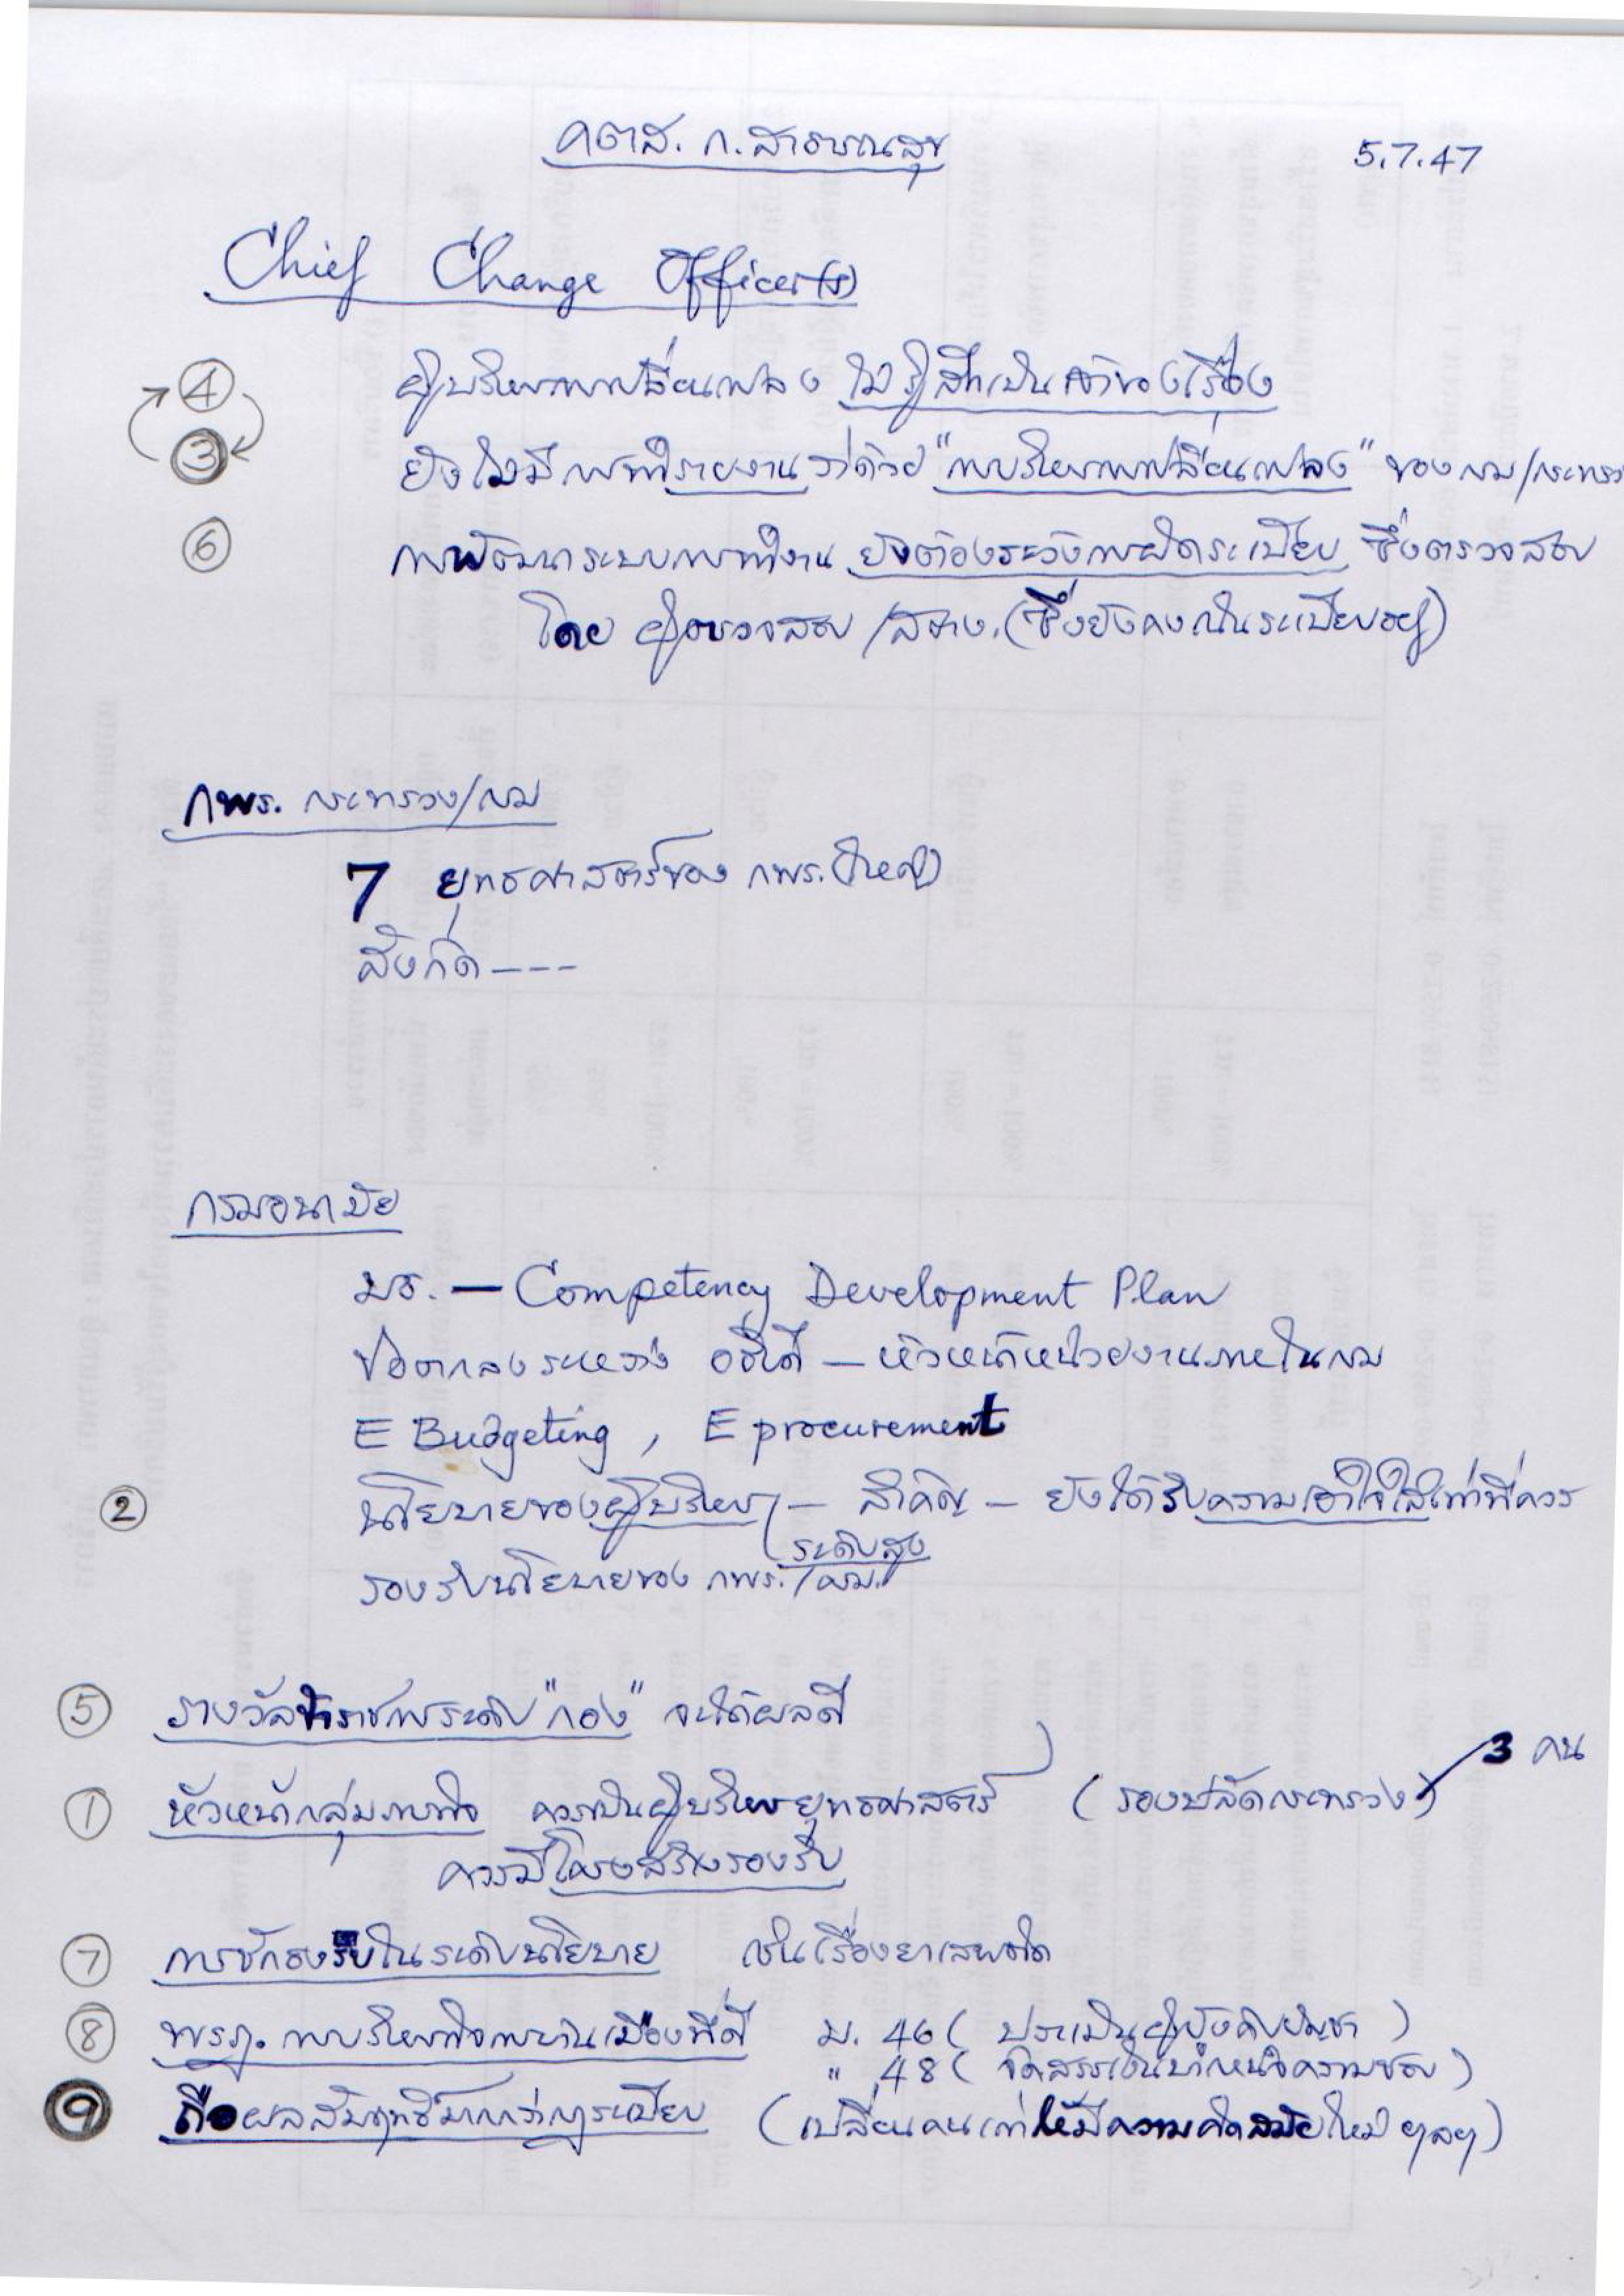 คตส. ก.สาธารณสุข 5.7.47
Chief Change Officer(s)
④ ผู้บริหารการเปลี่ยนแปลง ไม่รู้สึกเป็นเจ้าของเรื่อง
③ ยังไม่มีการทำรายงานว่าด้วย "การบริหารการเปลี่ยนแปลง" ของกรม/กระทรวง
⑥ การพัฒนาระบบการทำงาน ยังต้องระวังการผิดระเบียบ ซึ่งตรวจสอบ
โดย ผู้ตรวจสอบ /สตง. (ซึ่งยังคงเน้นระเบียบอยู่)
กพร. กระทรวง/กรม
7 ยุทธศาสตร์ของ กพร. (ใหญ่)
สังกัด ----
กรมอนามัย
มธ. — Competency Development Plan
ข้อตกลงระหว่าง อธิบดี — หัวหน้าหน่วยงานภายในกรม
E Budgeting , E procurement
② นโยบายของผู้บริหาร — สำคัญ — ยังได้รับความเอาใจใส่เท่าที่ควร
ระดับสูง
รองรับนโยบายของ กพร. /กรม.
⑤ รางวัลข้าราชการระดับ "กอง" จะได้ผลดี
3 คน
① หัวหน้ากลุ่มภารกิจ ควรเป็นผู้บริหารยุทธศาสตร์ (รองปลัดกระทรวง)
ควรมีโครงสร้างรองรับ
⑦ การรับในระดับนโยบาย เช่นเรื่องยาเสพติด
⑧ พรฎ. การบริหารกิจการบ้านเมืองที่ดี ม. 46 ( ประเมินผู้บังคับบัญชา )
" 48 ( จัดสรรเงินบำเหน็จความชอบ )
⑨ ถือผลสัมฤทธิ์มากกว่ากฎระเบียบ (เปลี่ยนคนเก่าให้มีความคิดสมัยใหม่ ฯลฯ)